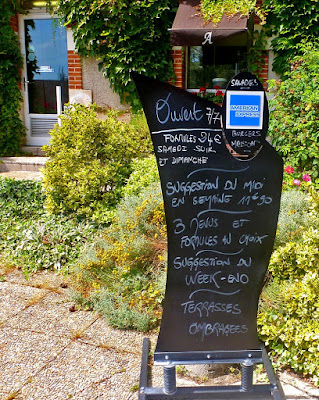 A
Ouvert 7/7
FORMULES 24€
SAMEDI SOIR
ET DIMANCHE
SALADES
AMERICAN
EXPRESS
BURGERS
MAISON
SUGGESTION DU MIDI
EN SEMAINE 11€90
3 MENUS ET
FORMULES AU CHOIX
SUGGESTION DU
WEEK-END
TERRASSES
OMBRAGÉES